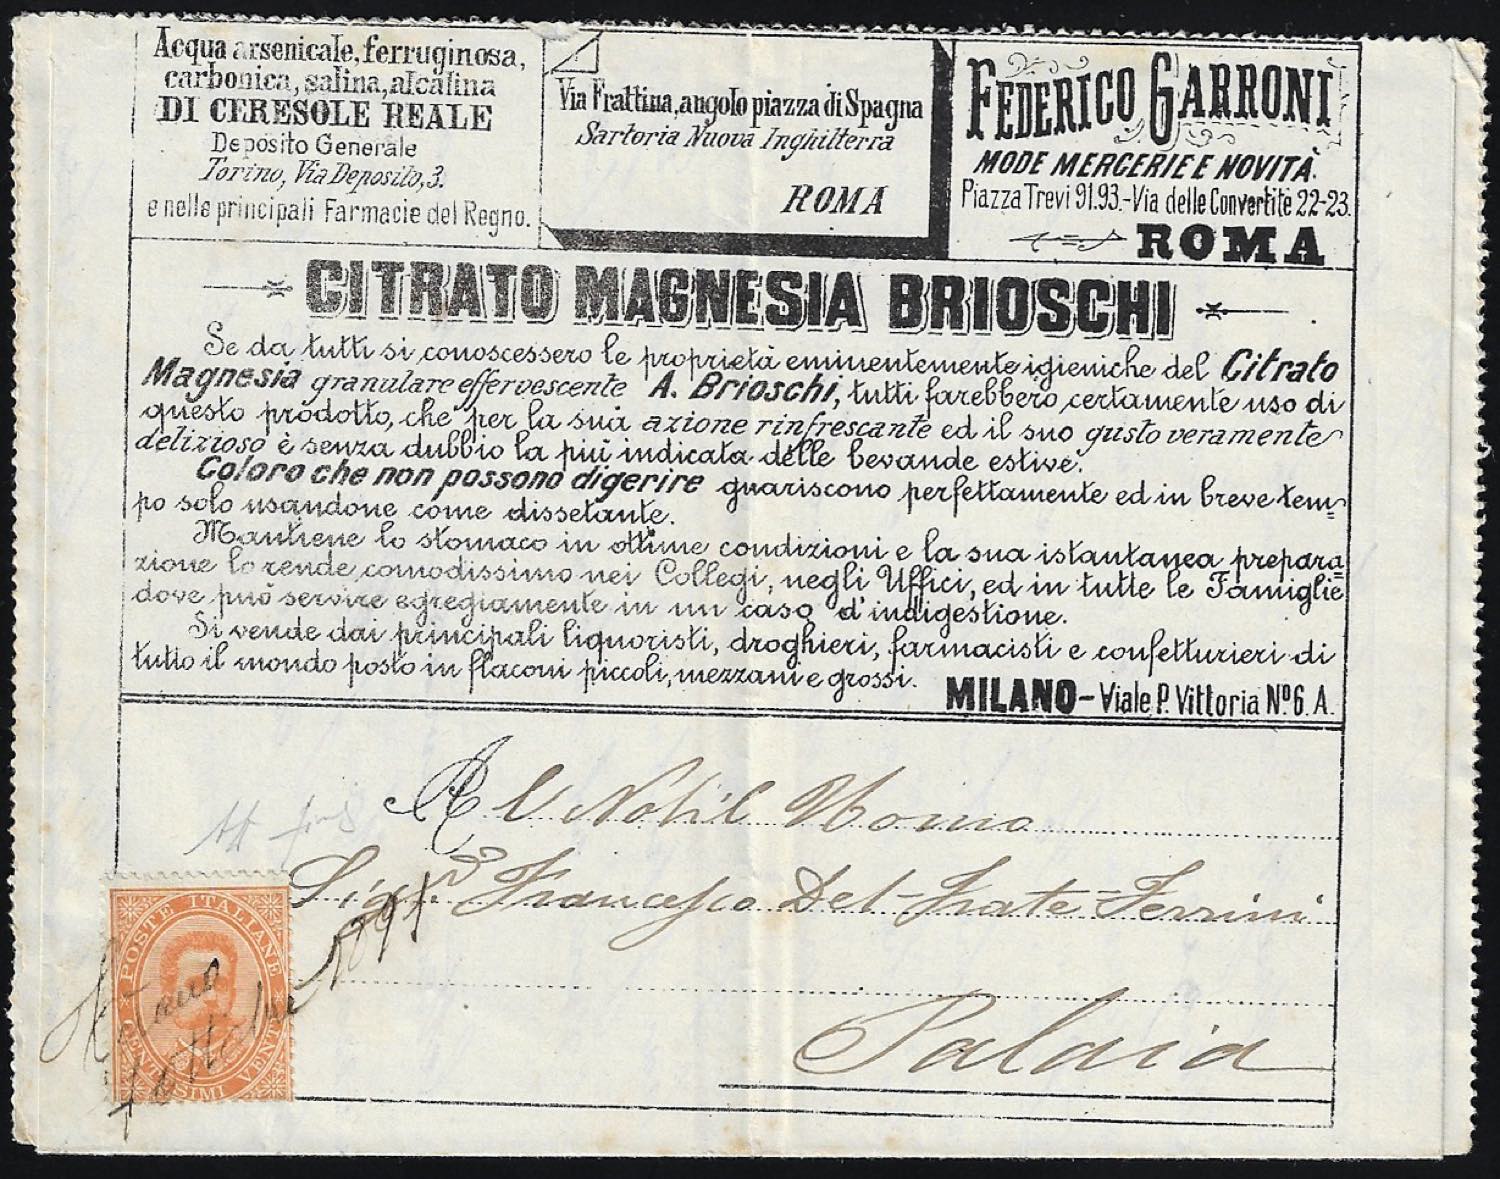 Acqua arsenicale, ferruginosa,
carbonica, salina, alcalina
DI CERESOLE REALE
Deposito Generale
Torino, Via Deposito, 3.
e nelle principali Farmacie del Regno.
Via Frattina, angolo piazza di Spagna
Sartoria Nuova Inghilterra
ROMA
FEDERICO GARRONI
MODE MERCERIE E NOVITÀ
Piazza Trevi 91.93.-Via delle Convertite 22-23.
ROMA
CITRATO MAGNESIA BRIOSCHI
Se da tutti si conoscessero le proprietà eminentemente igieniche del Citrato
Magnesia granulare effervescente A. Brioschi, tutti farebbero certamente uso di
questo prodotto, che per la sua azione rinfrescante ed il suo gusto veramente
delizioso è senza dubbio la più indicata delle bevande estive.
Coloro che non possono digerire guariscono perfettamente ed in breve tem=
po solo usandone come dissetante.
Mantiene lo stomaco in ottime condizioni e la sua istantanea prepara=
zione lo rende comodissimo nei Collegi, negli Uffici, ed in tutte le Famiglie
dove può servire egregiamente in un caso d'indigestione.
Si vende dai principali liquoristi, droghieri, farmacisti e confetturieri di
tutto il mondo posto in flaconi piccoli, mezzani e grossi.
MILANO - Viale P. Vittoria Nº 6. A.
Al Nobil Uomo
Sigr Francesco Del-Frate-Ferrini
Palaia
POSTE ITALIANE
CENTESIMI VENTI
7 Ottobre 1891